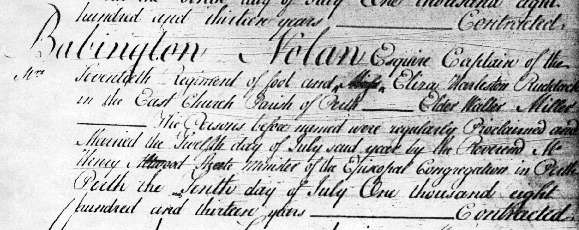 hundred and thirteen years Contracted
Babington Nolan Esquire Captain of the
Mrs Seventieth Regiment of foot and Miss Eliza Ruddock
in the East Church Parish of Perth Elder Walter Miller
The Persons before named were regularly Proclaimed and
Married the Twelfth day of July said year by the Reverend Mr
Henry Skeete Minister of the Episcopal Congregation in Perth
Perth the Tenth day of July One thousand eight
hundred and thirteen years Contracted